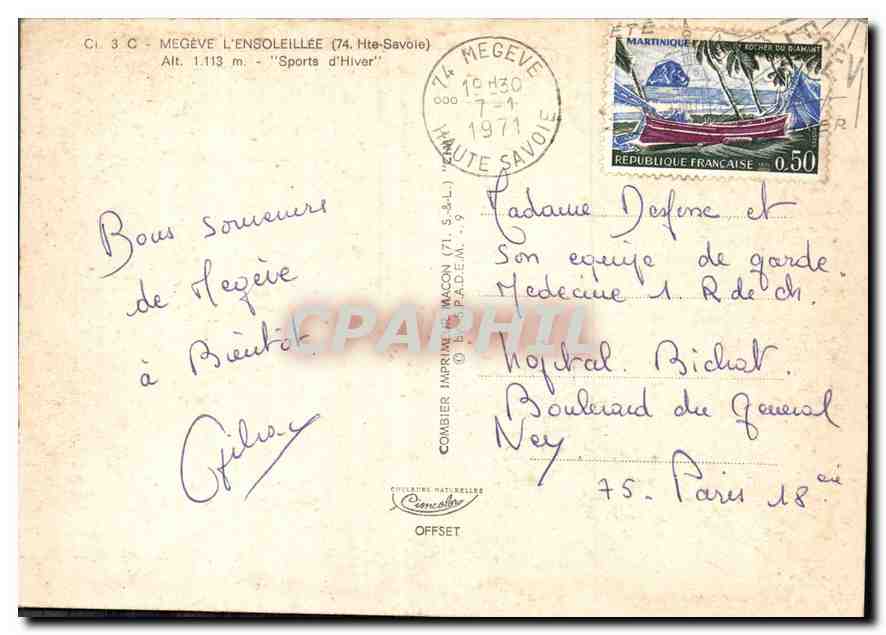 Ci. 3 C - MEGÈVE L'ENSOLEILLÉE (74. Hte-Savoie)
Alt. 1.113 m. - "Sports d'Hiver"
74 MEGEVE
19H30
7-1
1971
HAUTE SAVOIE
ETE
MARTINIQUE
ROCHER DU DIAMANT
REPUBLIQUE FRANCAISE
0.50
Bons souvenirs
de Megève
à Bientôt.
COMBIER IMPRIMEUR MACON (71. S.-&-L.) "CIM"
© by S.P.A.D.E.M. - 9
CPAPHIL
Madame Desfosse et
son equipe de garde
Medecine 1. R de ch.
Hopital Bichat.
Boulevard du General
Ney
75 - Paris 18
COULEURS NATURELLES
Cimcolor
OFFSET